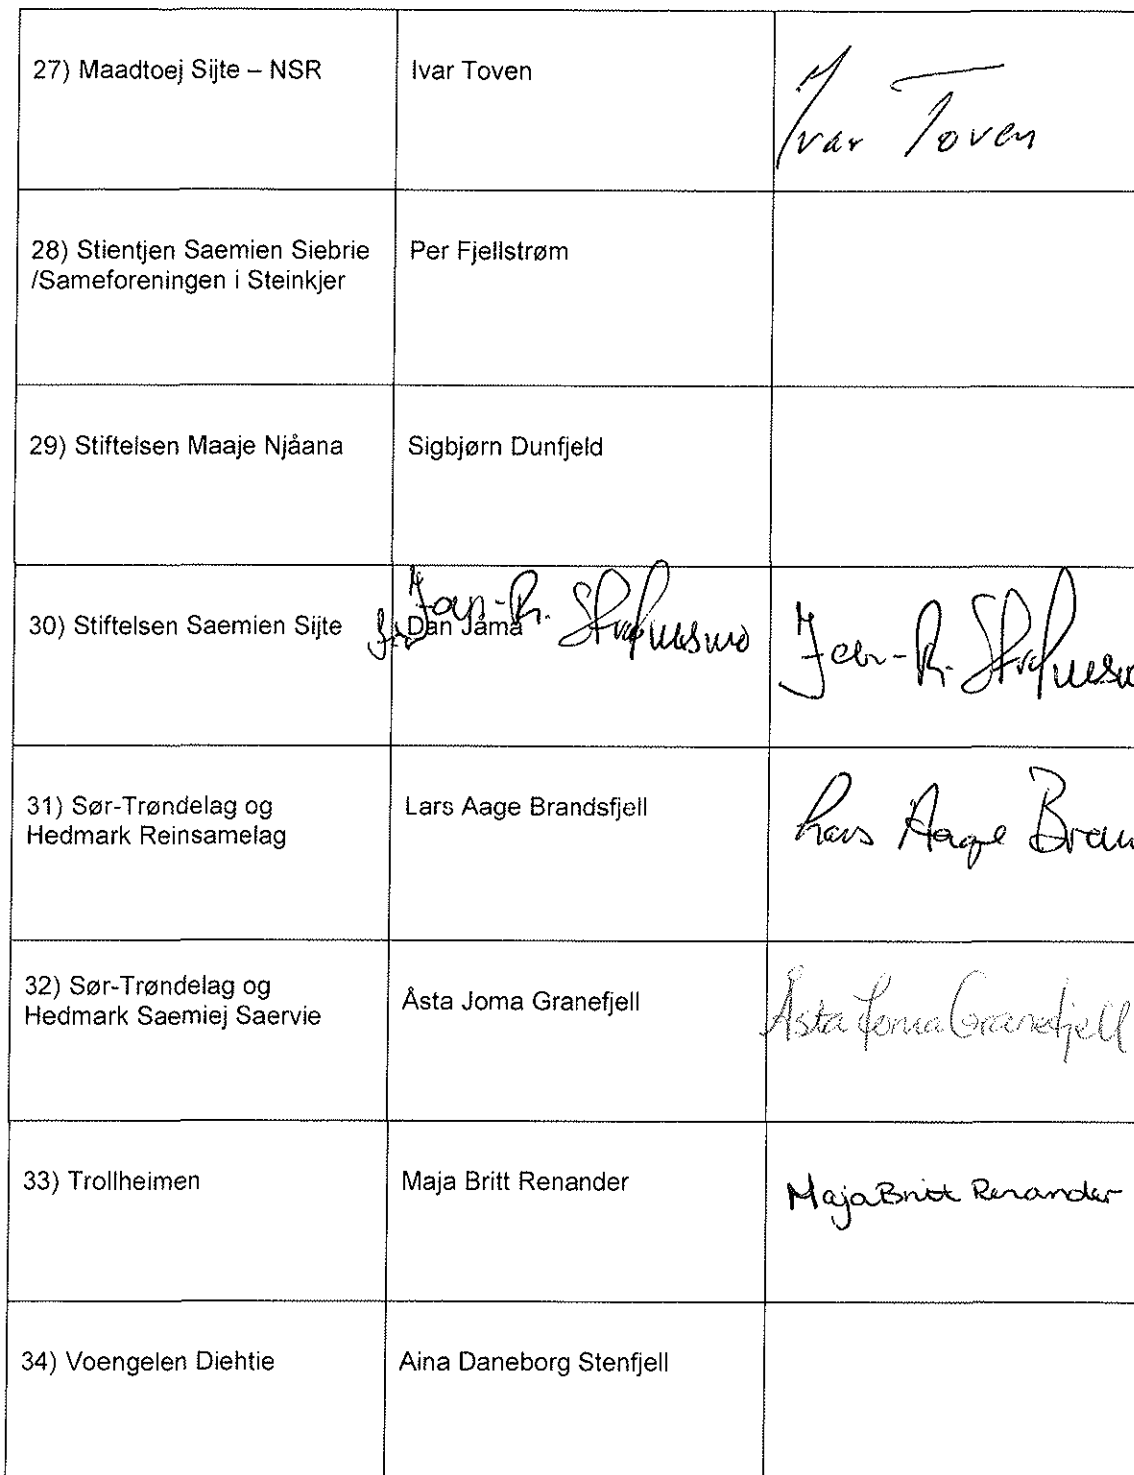 27) Maadtoej Sijte – NSR
Ivar Toven
Ivar Toven
28) Stientjen Saemien Siebrie
/Sameforeningen i Steinkjer
Per Fjellstrøm
29) Stiftelsen Maaje Njåana
Sigbjørn Dunfjeld
30) Stiftelsen Saemien Sijte
Dan Jåma
31) Sør-Trøndelag og
Hedmark Reinsamelag
Lars Aage Brandsfjell
Lars Aage Bran
32) Sør-Trøndelag og
Hedmark Saemiej Saervie
Åsta Joma Granefjell
Åsta Joma Granefjell
33) Trollheimen
Maja Britt Renander
Maja Britt Renander
34) Voengelen Diehtie
Aina Daneborg Stenfjell